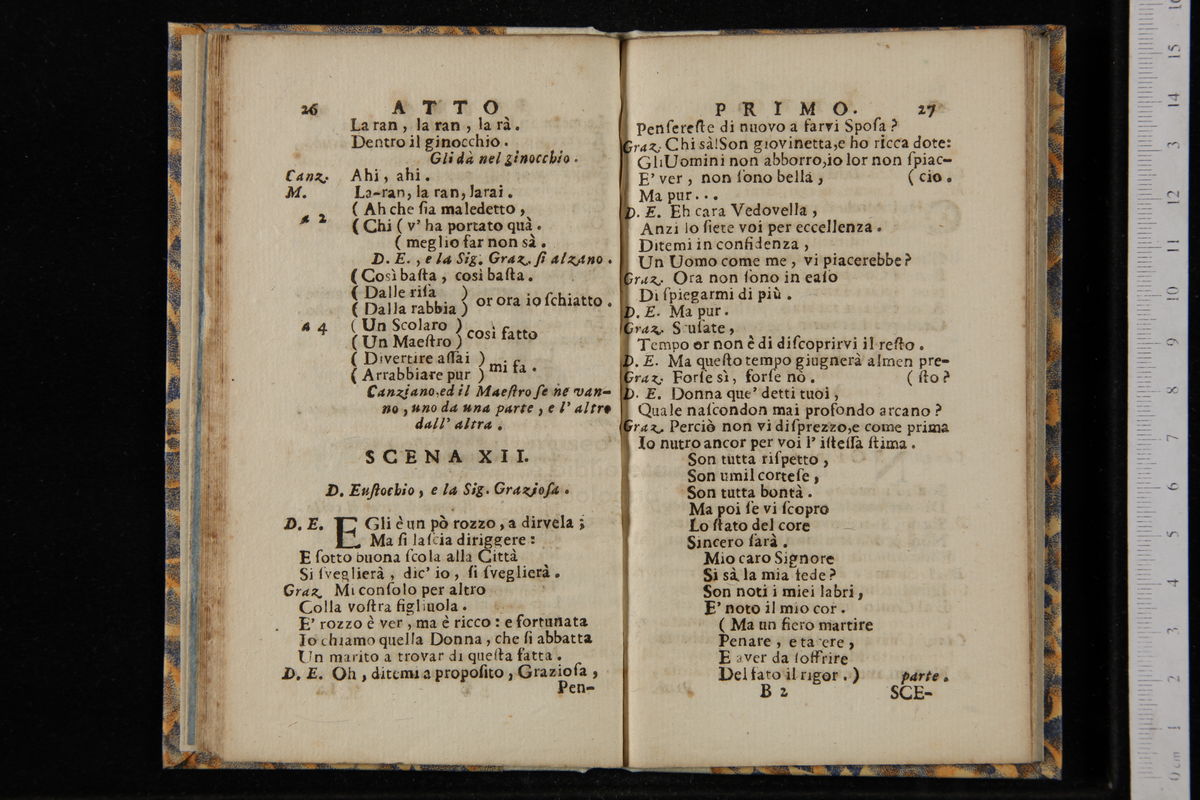 26 ATTO
La ran, la ran, la rà.
Dentro il ginocchio.
Gli dà nel ginocchio.
Canz. Ahi, ahi.
M. La-ran, la ran, larai.
( Ah che ſia maledetto,
a 2 ( Chi ( v' ha portato quà.
( meglio far non sà.
D. E., e la Sig. Graz. ſi alzano.
( Così baſta, così baſta.
( Dalle riſa )
or ora io ſchiatto.
( Dalla rabbia )
a 4 ( Un Scolaro )
così fatto
( Un Maeſtro )
( Divertire aſſai )
mi fa.
( Arrabbiare pur )
Canziano, ed il Maeſtro ſe ne van-
no, uno da una parte, e l' altro
dall' altra.
SCENA XII.
D. Euſtochio, e la Sig. Grazioſa.
D. E. EGli è un pò rozzo, a dirvela;
Ma ſi laſcia diriggere:
E ſotto buona ſcola alla Città
Si ſveglierà, dic' io, ſi ſveglierà.
Graz. Mi conſolo per altro
Colla voſtra figliuola.
E' rozzo è ver, ma è ricco: e fortunata
Io chiamo quella Donna, che ſi abbatta
Un marito a trovar di queſta fatta.
D. E. Oh, ditemi a propoſito, Grazioſa,
Pen-
PRIMO. 27
Penſereſte di nuovo a farvi Spoſa?
Graz. Chi sà! Son giovinetta, e ho ricca dote:
Gli Uomini non abborro, io lor non ſpiac-
E' ver, non ſono bella, ( cio.
Ma pur...
D. E. Eh cara Vedovella,
Anzi lo ſiete voi per eccellenza.
Ditemi in confidenza,
Un Uomo come me, vi piacerebbe?
Graz. Ora non ſono in caſo
Di ſpiegarmi di più.
D. E. Ma pur.
Graz. Scuſate,
Tempo or non è di diſcoprirvi il reſto.
D. E. Ma queſto tempo giugnerà almen pre-
Graz. Forſe sì, forſe nò. ( ſto?
D. E. Donna que' detti tuoi,
Quale naſcondon mai profondo arcano?
Graz. Perciò non vi diſprezzo, e come prima
Io nutro ancor per voi l' iſteſſa ſtima.
Son tutta riſpetto,
Son umil corteſe,
Son tutta bontà.
Ma poi ſe vi ſcopro
Lo ſtato del core
Sincero ſarà.
Mio caro Signore
Si sà la mia fede?
Son noti i miei labri,
E' noto il mio cor.
( Ma un fiero martire
Penare, e tacere,
E aver da ſoffrire
Del fato il rigor. ) parte.
B 2 SCE-